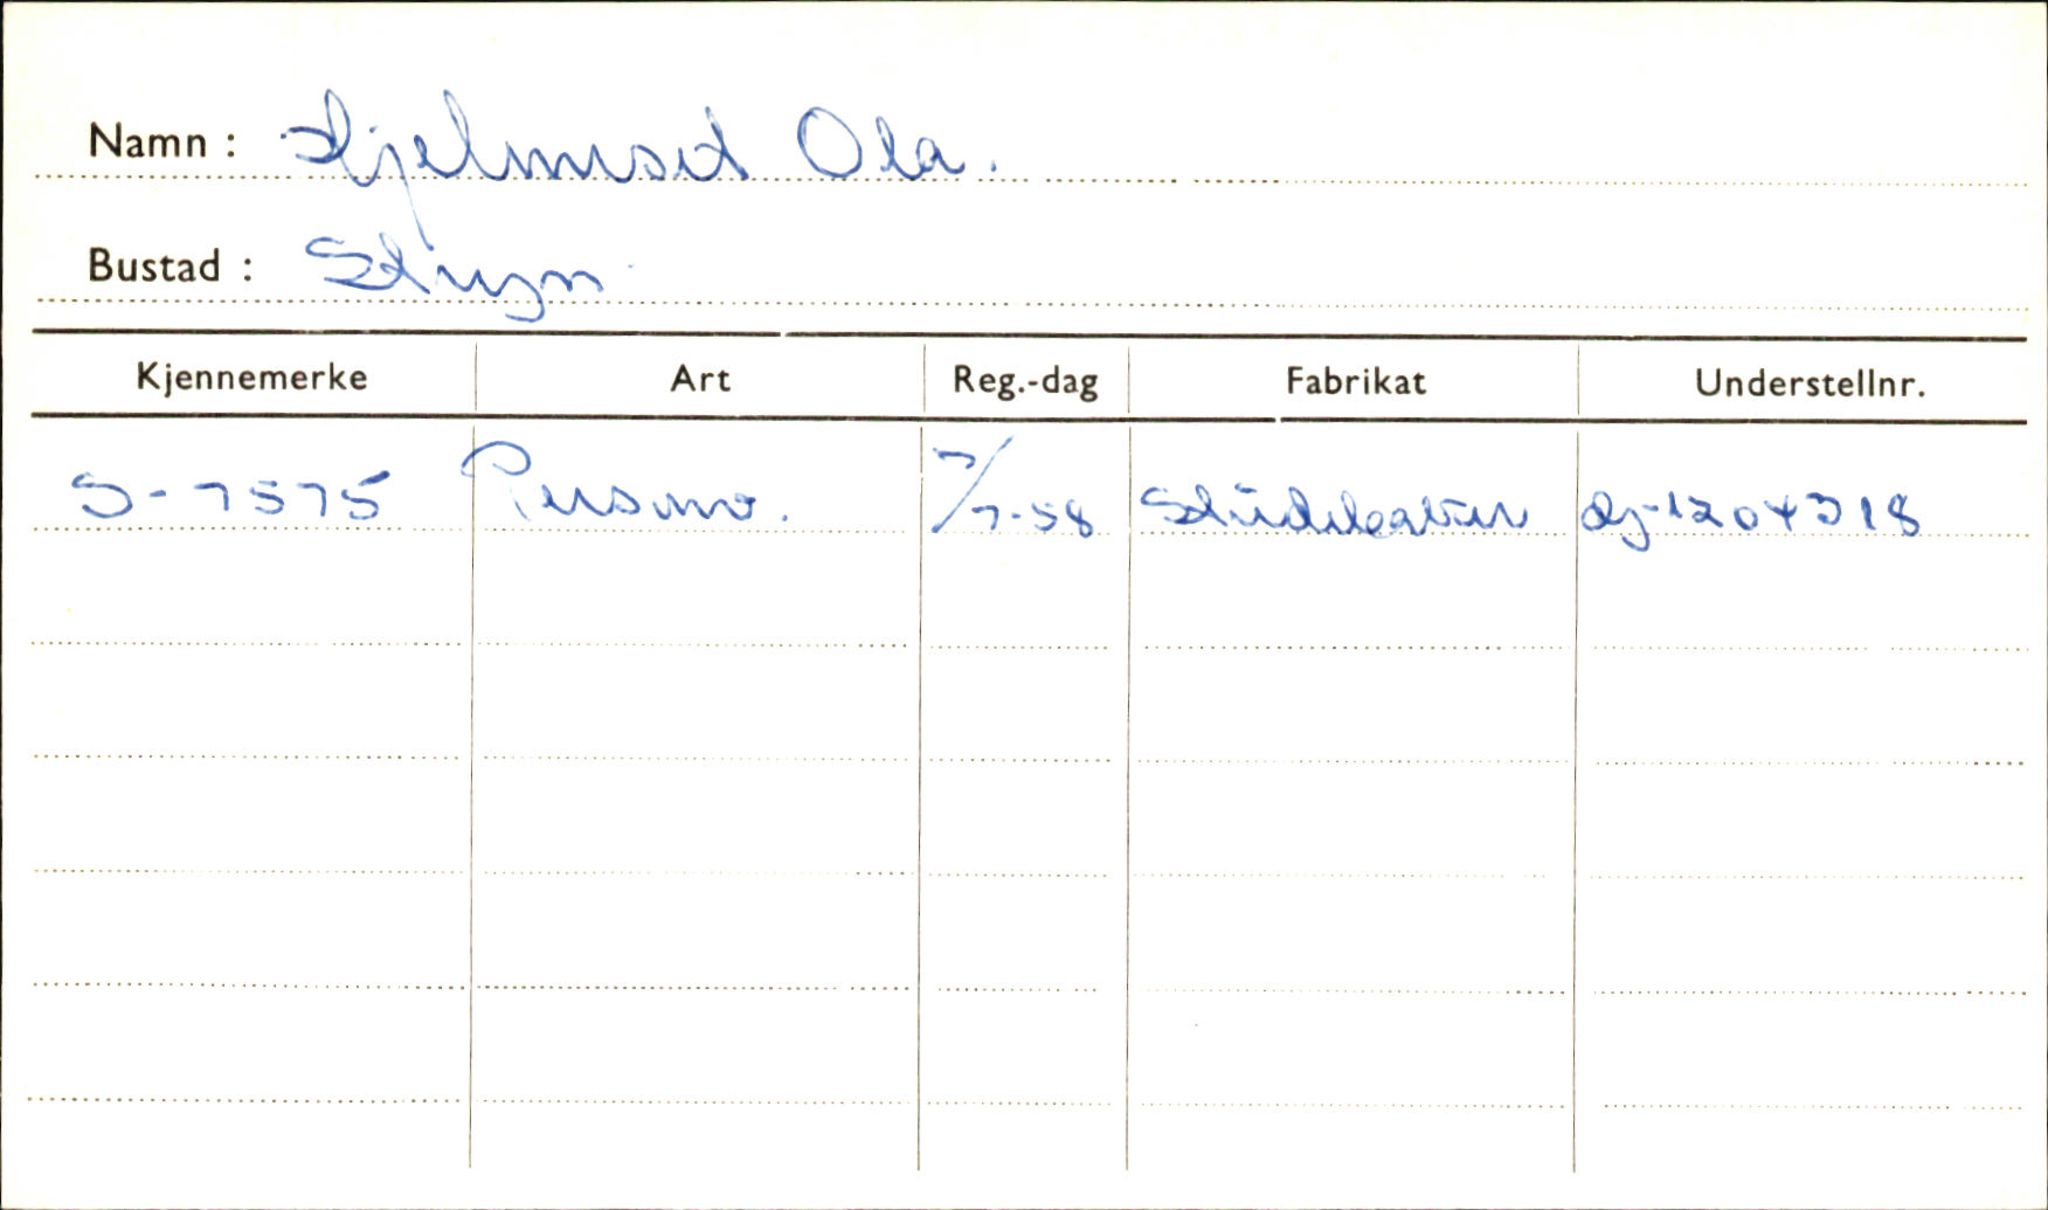 Namn : Hjelmset Ola.
Bustad : Stryn
Kjennemerke Art Reg.-dag Fabrikat Understellnr.
S-7575 Personv. 7/7-58 Studebaker dj-1204318